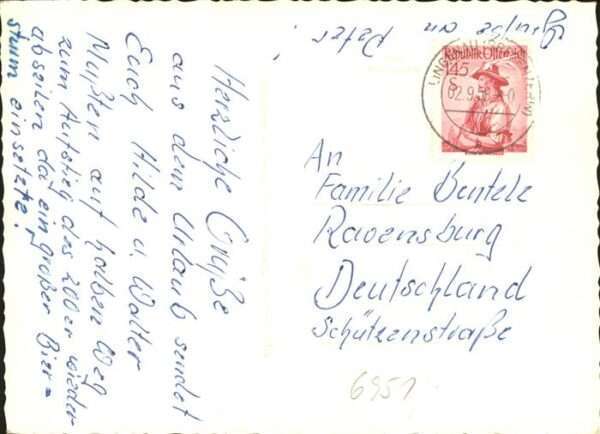 Herzliche Grüße
aus dem Urlaub sendet
Euch Hilde u. Walter
Mußten auf halben Weg
zum Aufstieg des 200er wieder
abseilen da ein großer Bier=
sturm einsetzte.
Grüße an Peter.
Republik Österreich
145
S
02.9.5
An
Familie Buntele
Ravensburg
Deutschland
Schützenstraße
6951